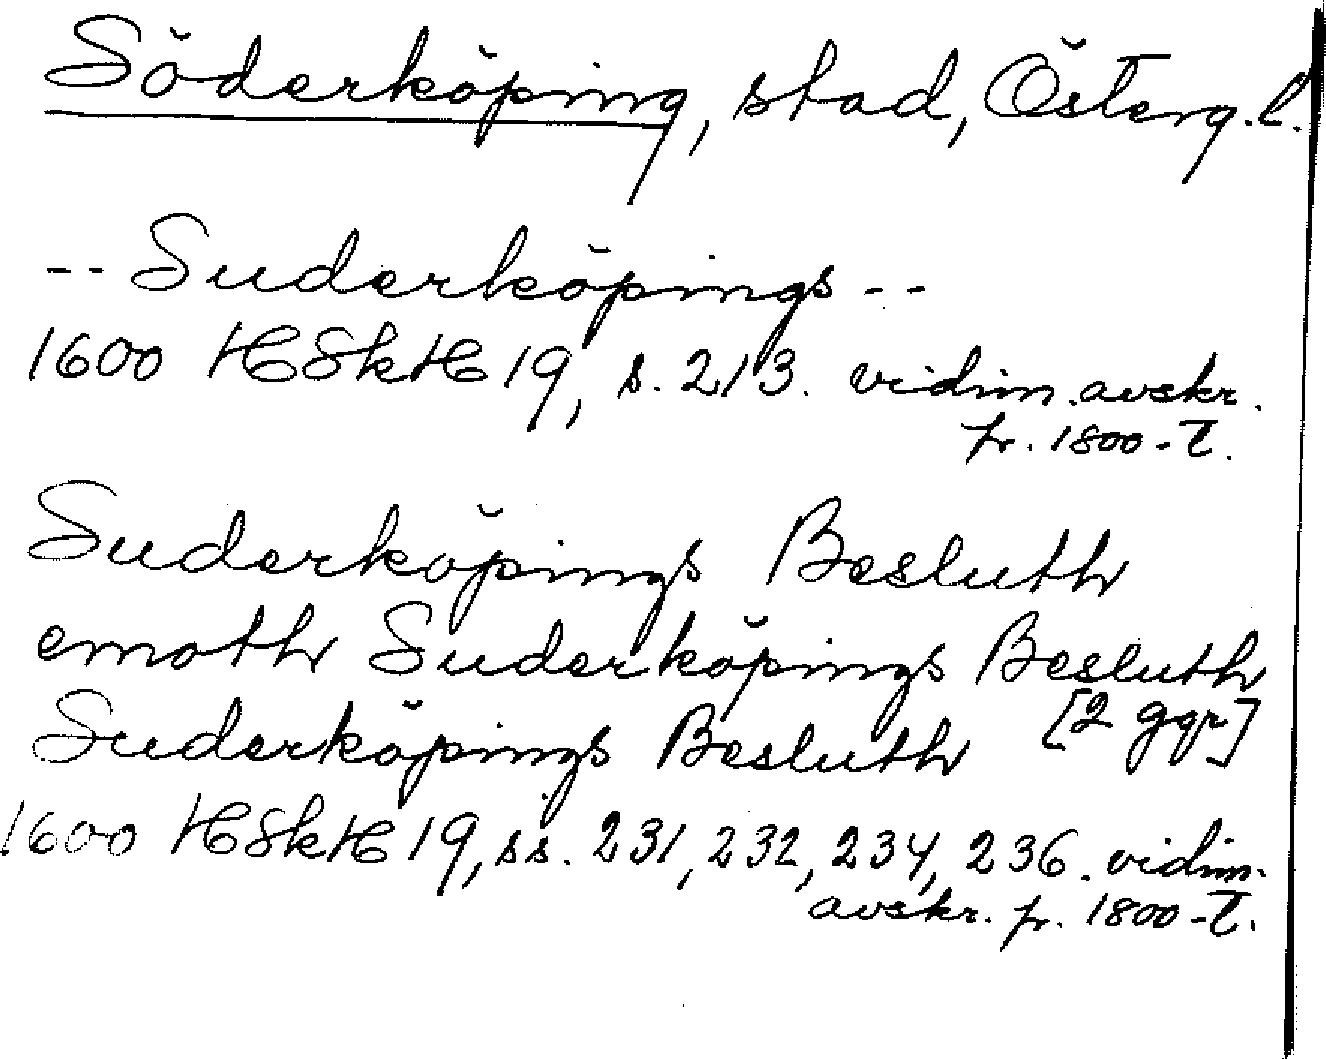 Söderköping, stad, Österg.l.
-- Suderköpings --
1600 HSkH 19, s. 213. vidim. avskr.
fr. 1800-t.
Suderköpings Besluth
emoth Suderköpings Besluth
[2 ggr]
Suderköpings Besluth
1600 HSkH 19, ss. 231, 232, 234, 236. vidim.
avskr. fr. 1800-t.